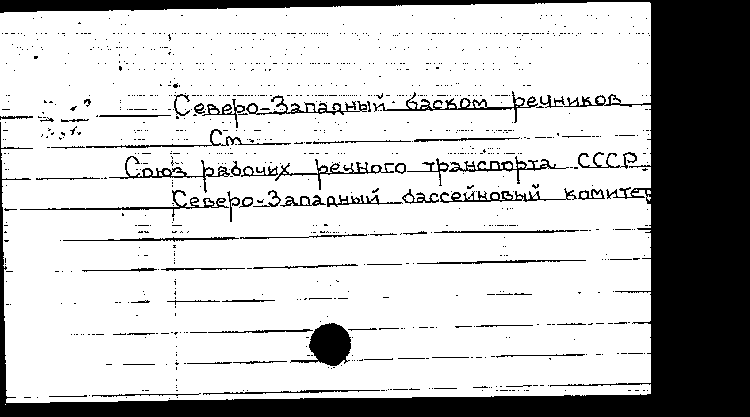 Северо-Западный баском речников
См.
Союз рабочих речного транспорта СССР.
Северо-Западный бассейновый комитет